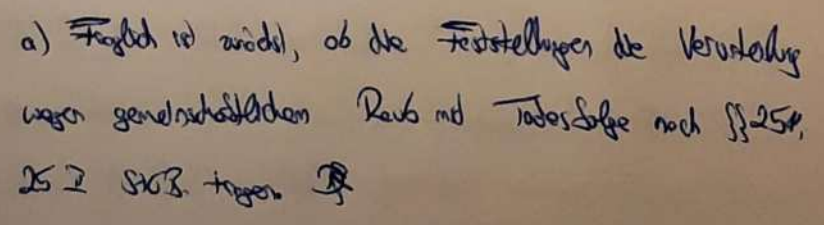 a) Fraglich ist zunächst, ob die Feststellungen die Verurteilung
wegen gemeinschaftlichem Raub mit Todesfolge nach §§ 251,
25 II StGB tragen.